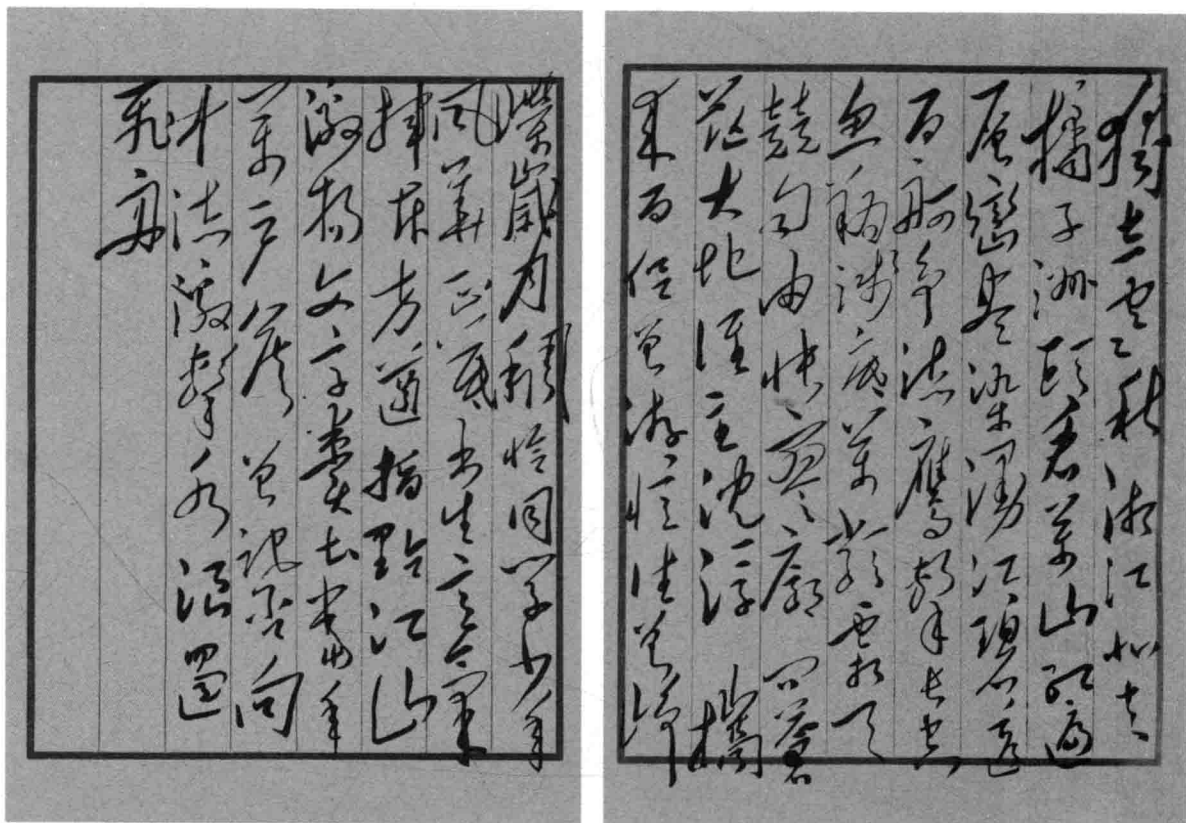 獨立寒秋湘江北去
橘子洲頭看萬山紅遍
层巒尽染漫江碧透
百舸争流鷹擊長空
鱼翔浅底萬類霜天
競自由怅寥廓 问蒼
茫大地谁主沈浮 攜
来百侣曾游憶往昔峥
嶸歲月稠恰同学少年
風華正茂书生意氣
揮斥方遒指點江山
激揚文字糞土當年
萬户侯曾记否向
中流激擊水浪遏
飛舟